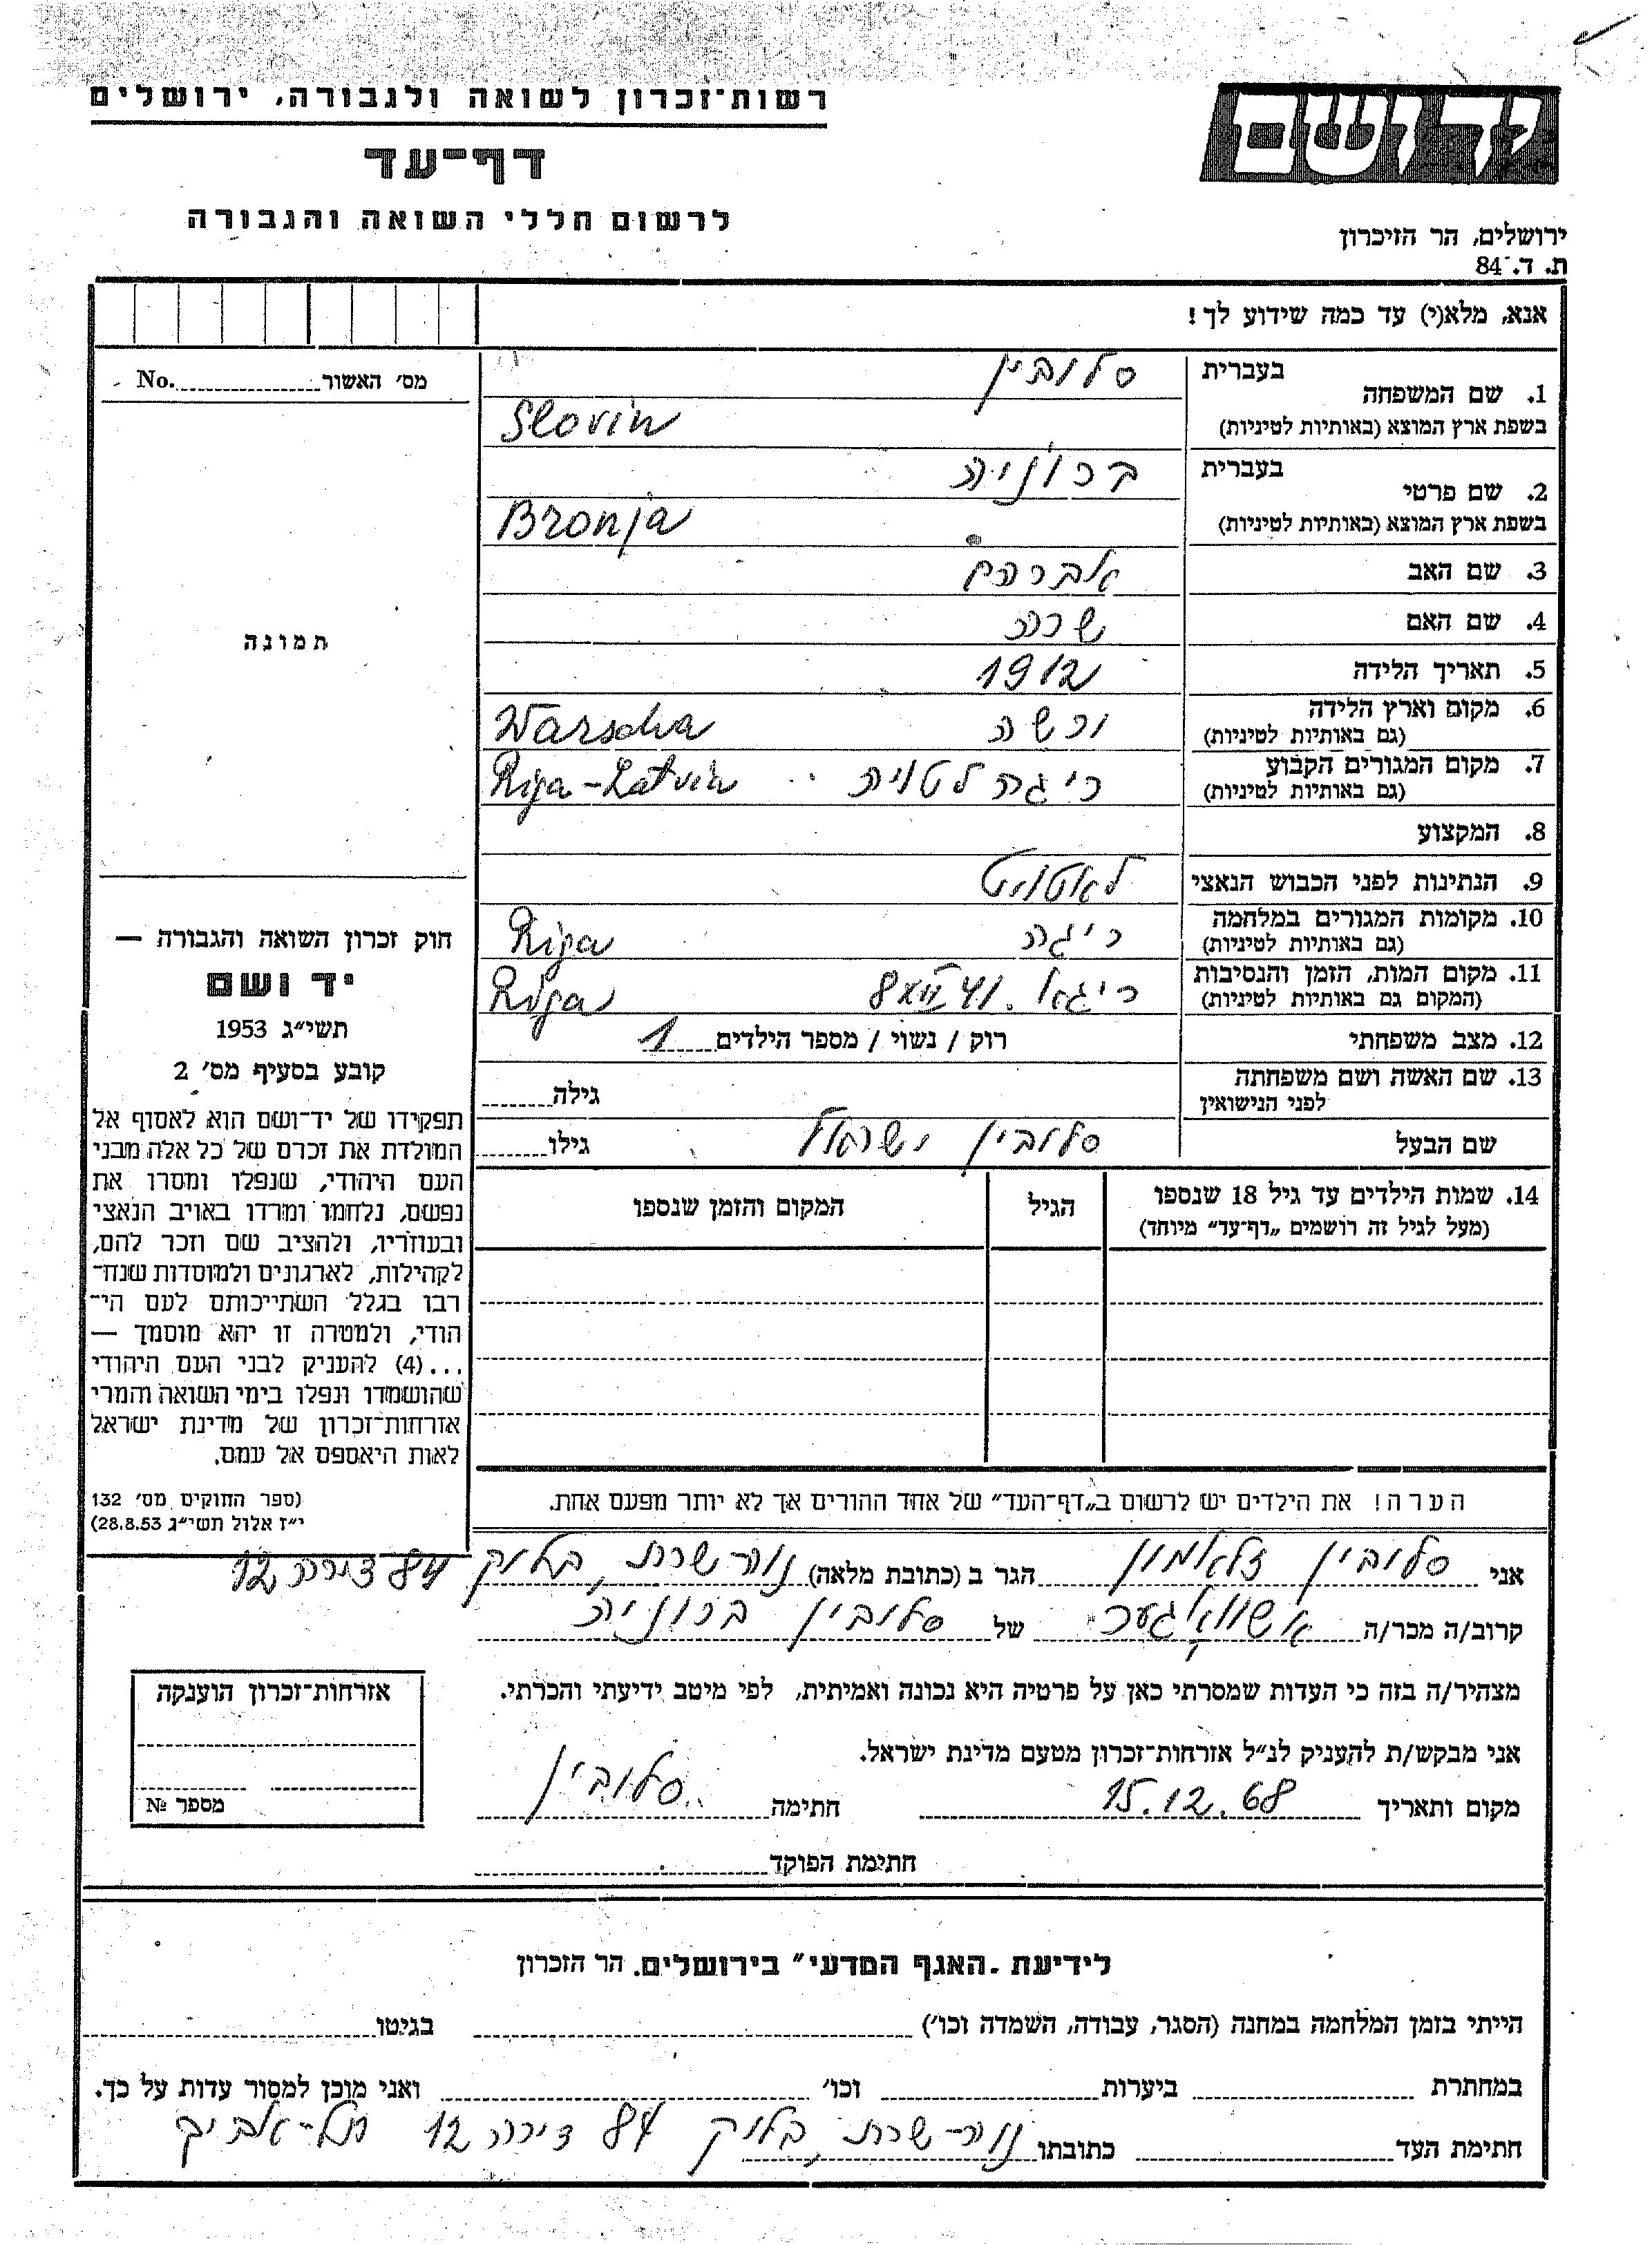 רשות־זכרון לשואה ולגבורה, ירושלים
דף־עד
לרשום חללי השואה והגבורה
יד ושם
ירושלים, הר הזיכרון
ת. ד. 84
אנא, מלא(י) עד כמה שידוע לך!
1. שם המשפחה
בעברית סלובין
בשפת ארץ המוצא (באותיות לטיניות) Slovin
2. שם פרטי
בעברית ברוניה
בשפת ארץ המוצא (באותיות לטיניות) Bronja
3. שם האב אברהם
4. שם האם שרה
5. תאריך הלידה 1912
6. מקום וארץ הלידה ורשה Warscha
(גם באותיות לטיניות)
7. מקום המגורים הקבוע ריגה לטויה Riga-Latvia
(גם באותיות לטיניות)
8. המקצוע
9. הנתינות לפני הכבוש הנאצי לאטווית
10. מקומות המגורים במלחמה ריגה Riga
(גם באותיות לטיניות)
11. מקום המות, הזמן והנסיבות ריגא 8 XII 41 Riga
(המקום גם באותיות לטיניות)
12. מצב משפחתי רוק / נשוי / מספר הילדים 1
13. שם האשה ושם משפחתה
לפני הנישואין גילה
שם הבעל סלובין ישראל גילו
14. שמות הילדים עד גיל 18 שנספו הגיל המקום והזמן שנספו
(מעל לגיל זה רושמים „דף־עד” מיוחד)
הערה! את הילדים יש לרשום ב„דף־העד” של אחד ההורים אך לא יותר מפעם אחת.
מס׳ האשור No.
תמונה
חוק זכרון השואה והגבורה —
יד ושם
תשי״ג 1953
קובע בסעיף מס׳ 2
תפקידו של יד־ושם הוא לאסוף אל
המולדת את זכרם של כל אלה מבני
העם היהודי, שנפלו ומסרו את
נפשם, נלחמו ומרדו באויב הנאצי
ובעוזריו, ולהציב שם וזכר להם,
לקהילות, לארגונים ולמוסדות שנח־
רבו בגלל השתייכותם לעם הי־
הודי, ולמטרה זו יהא מוסמך —
...(4) להעניק לבני העם היהודי
שהושמדו ונפלו בימי השואה והמרי
אזרחות־זכרון של מדינת ישראל
לאות היאספם אל עמם.
(ספר החוקים מס׳ 132
י״ז אלול תשי״ג 28.8.53)
אני סלובין זלאמון הגר ב (כתובת מלאה) נוה-שרת, בלוק 84 דירה 12
קרוב/ה מכר/ה של סלובין ברוניה
מצהיר/ה בזה כי העדות שמסרתי כאן על פרטיה היא נכונה ואמיתית, לפי מיטב ידיעתי והכרתי.
אני מבקש/ת להעניק לנ״ל אזרחות־זכרון מטעם מדינת ישראל.
מקום ותאריך 15.12.68 חתימה סלובין
חתימת הפוקד
אזרחות־זכרון הוענקה
מספר №
לידיעת „האגף המדעי” בירושלים. הר הזכרון
הייתי בזמן המלחמה במחנה (הסגר, עבודה, השמדה וכו׳) בגיטו
במחתרת ביערות וכו׳ ואני מוכן למסור עדות על כך.
חתימת העד כתובתו נוה-שרת, בלוק 84 דירה 12 תל-אביב